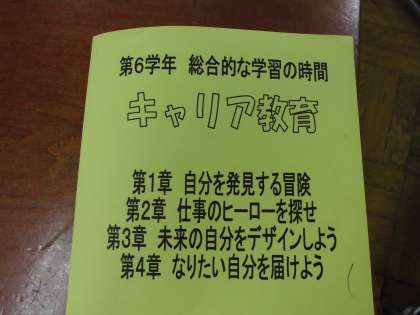 第6学年 総合的な学習の時間
キャリア教育
第1章 自分を発見する冒険
第2章 仕事のヒーローを探せ
第3章 未来の自分をデザインしよう
第4章 なりたい自分を届けよう